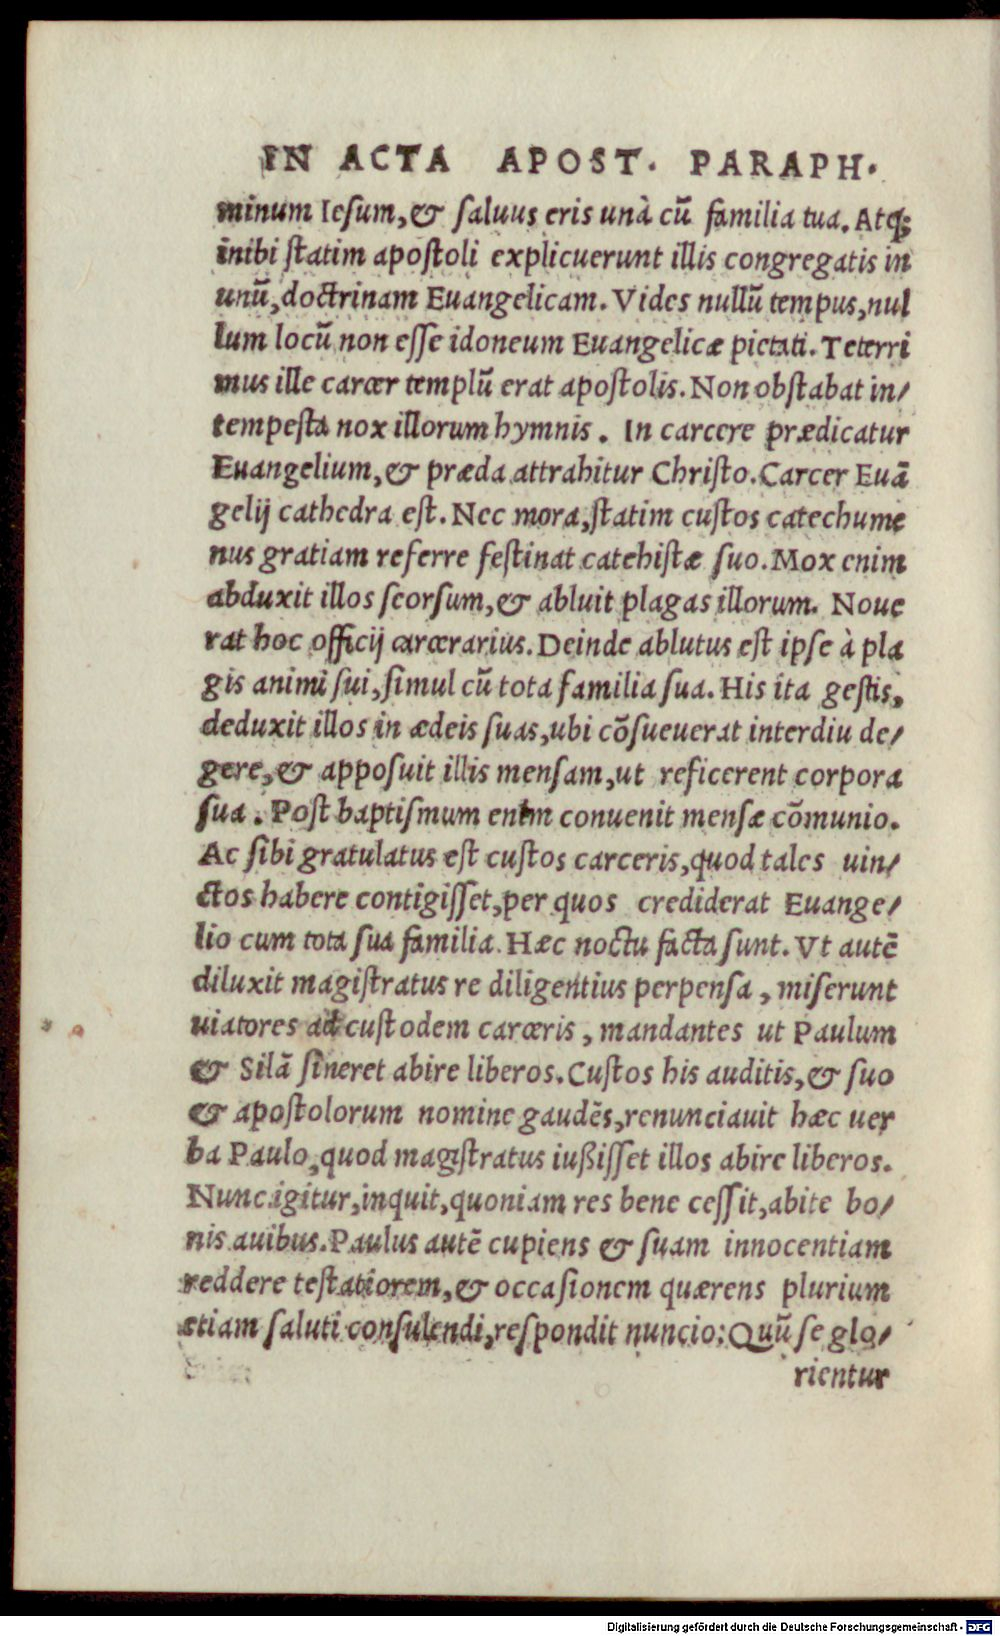 IN ACTA APOST. PARAPH.
minum Iesum, & saluus eris unà cũ familia tua. Atq;
inibi statim apostoli explicuerunt illis congregatis in
unũ, doctrinam Euangelicam. Vides nullũ tempus, nul
lum locũ non esse idoneum Euangelicæ pietati. Teterri
mus ille carcer templũ erat apostolis. Non obstabat in/
tempesta nox illorum hymnis. In carcere prædicatur
Euangelium, & præda attrahitur Christo. Carcer Euã
gelij cathedra est. Nec mora, statim custos catechume
nus gratiam referre festinat catehistæ suo. Mox enim
abduxit illos seorsum, & abluit plagas illorum. Noue
rat hoc officij carcerarius. Deinde ablutus est ipse à pla
gis animi sui, simul cũ tota familia sua. His ita gestis,
deduxit illos in ædeis suas, ubi cõsueuerat interdiu de/
gere, & apposuit illis mensam, ut reficerent corpora
sua. Post baptismum enim conuenit mensæ cõmunio.
Ac sibi gratulatus est custos carceris, quod tales uin/
ctos habere contigisset, per quos crediderat Euange/
lio cum tota sua familia. Hæc noctu facta sunt. Vt autẽ
diluxit magistratus re diligentius perpensa, miserunt
uiatores ad custodem carceris, mandantes ut Paulum
& Silã sineret abire liberos. Custos his auditis, & suo
& apostolorum nomine gaudẽs, renunciauit hæc uer
ba Paulo, quod magistratus iußisset illos abire liberos.
Nunc igitur, inquit, quoniam res bene cessit, abite bo/
nis auibus. Paulus autẽ cupiens & suam innocentiam
reddere testatiorem, & occasionem quærens plurium
etiam saluti consulendi, respondit nuncio: Quũ se glo/
rientur
Digitalisierung gefördert durch die Deutsche Forschungsgemeinschaft - DFG